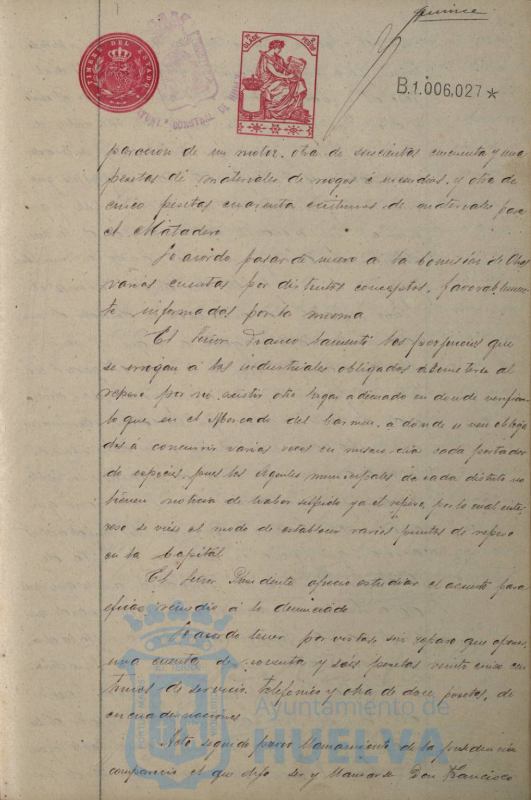 quince
TIMBRE DEL ESTADO
AYUNT° CONSTNAL DE HUELVA
B.1.006,027*
paracion de un motor, otra de suscientas cincuenta y una
pesetas de materiales de riegos é incendios, y otra de
cinco pesetas cuarenta centimos de materiales para
el Matadero
Se acordo pasar de nuevo a la Comisión de
varias cuentas por distintos conceptos, favorablemen-
te informadas por la misma
El Señor Franco lamentó los perjuicios que
se irrogan á los industriales obligados á someterse al
repeso por no existir otro lugar adecuado en donde verificar-
lo que en el Mercado del Carmen, á donde se ven obliga-
dos á concurrir varias veces en mismo dia cada portador
de especies, pues los Agentes municipales de cada distrito no
tienen noticia de haber sufrido ya el repeso, por lo cual inte-
resó se viese el modo de establecer varios puntos de repeso
en la Capital
El Señor Presidente ofreció estudiar el asunto para
remedio á lo denunciado
Se acordo tener por vistas, sin reparo que oponer,
una cuenta de noventa y seis pesetas veinte cinco cen-
timos de servicio telefónico y otra de doce pesetas, de
encuadernaciones
Acto seguido previo llamamiento de la presidencia
compareció el que dijo ser y llamarse Don Francisco
Ayuntamiento de
HUELVA